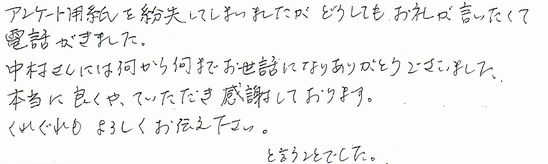 アンケート用紙を紛失してしまいましたが どうしても お礼が言いたくて
電話がきました。
中村さんには何から何までお世話になりありがとうございました。
本当に良くや、ていただき感謝しております。
くれぐれも よろしくお伝え下さい。
と言うことでした。